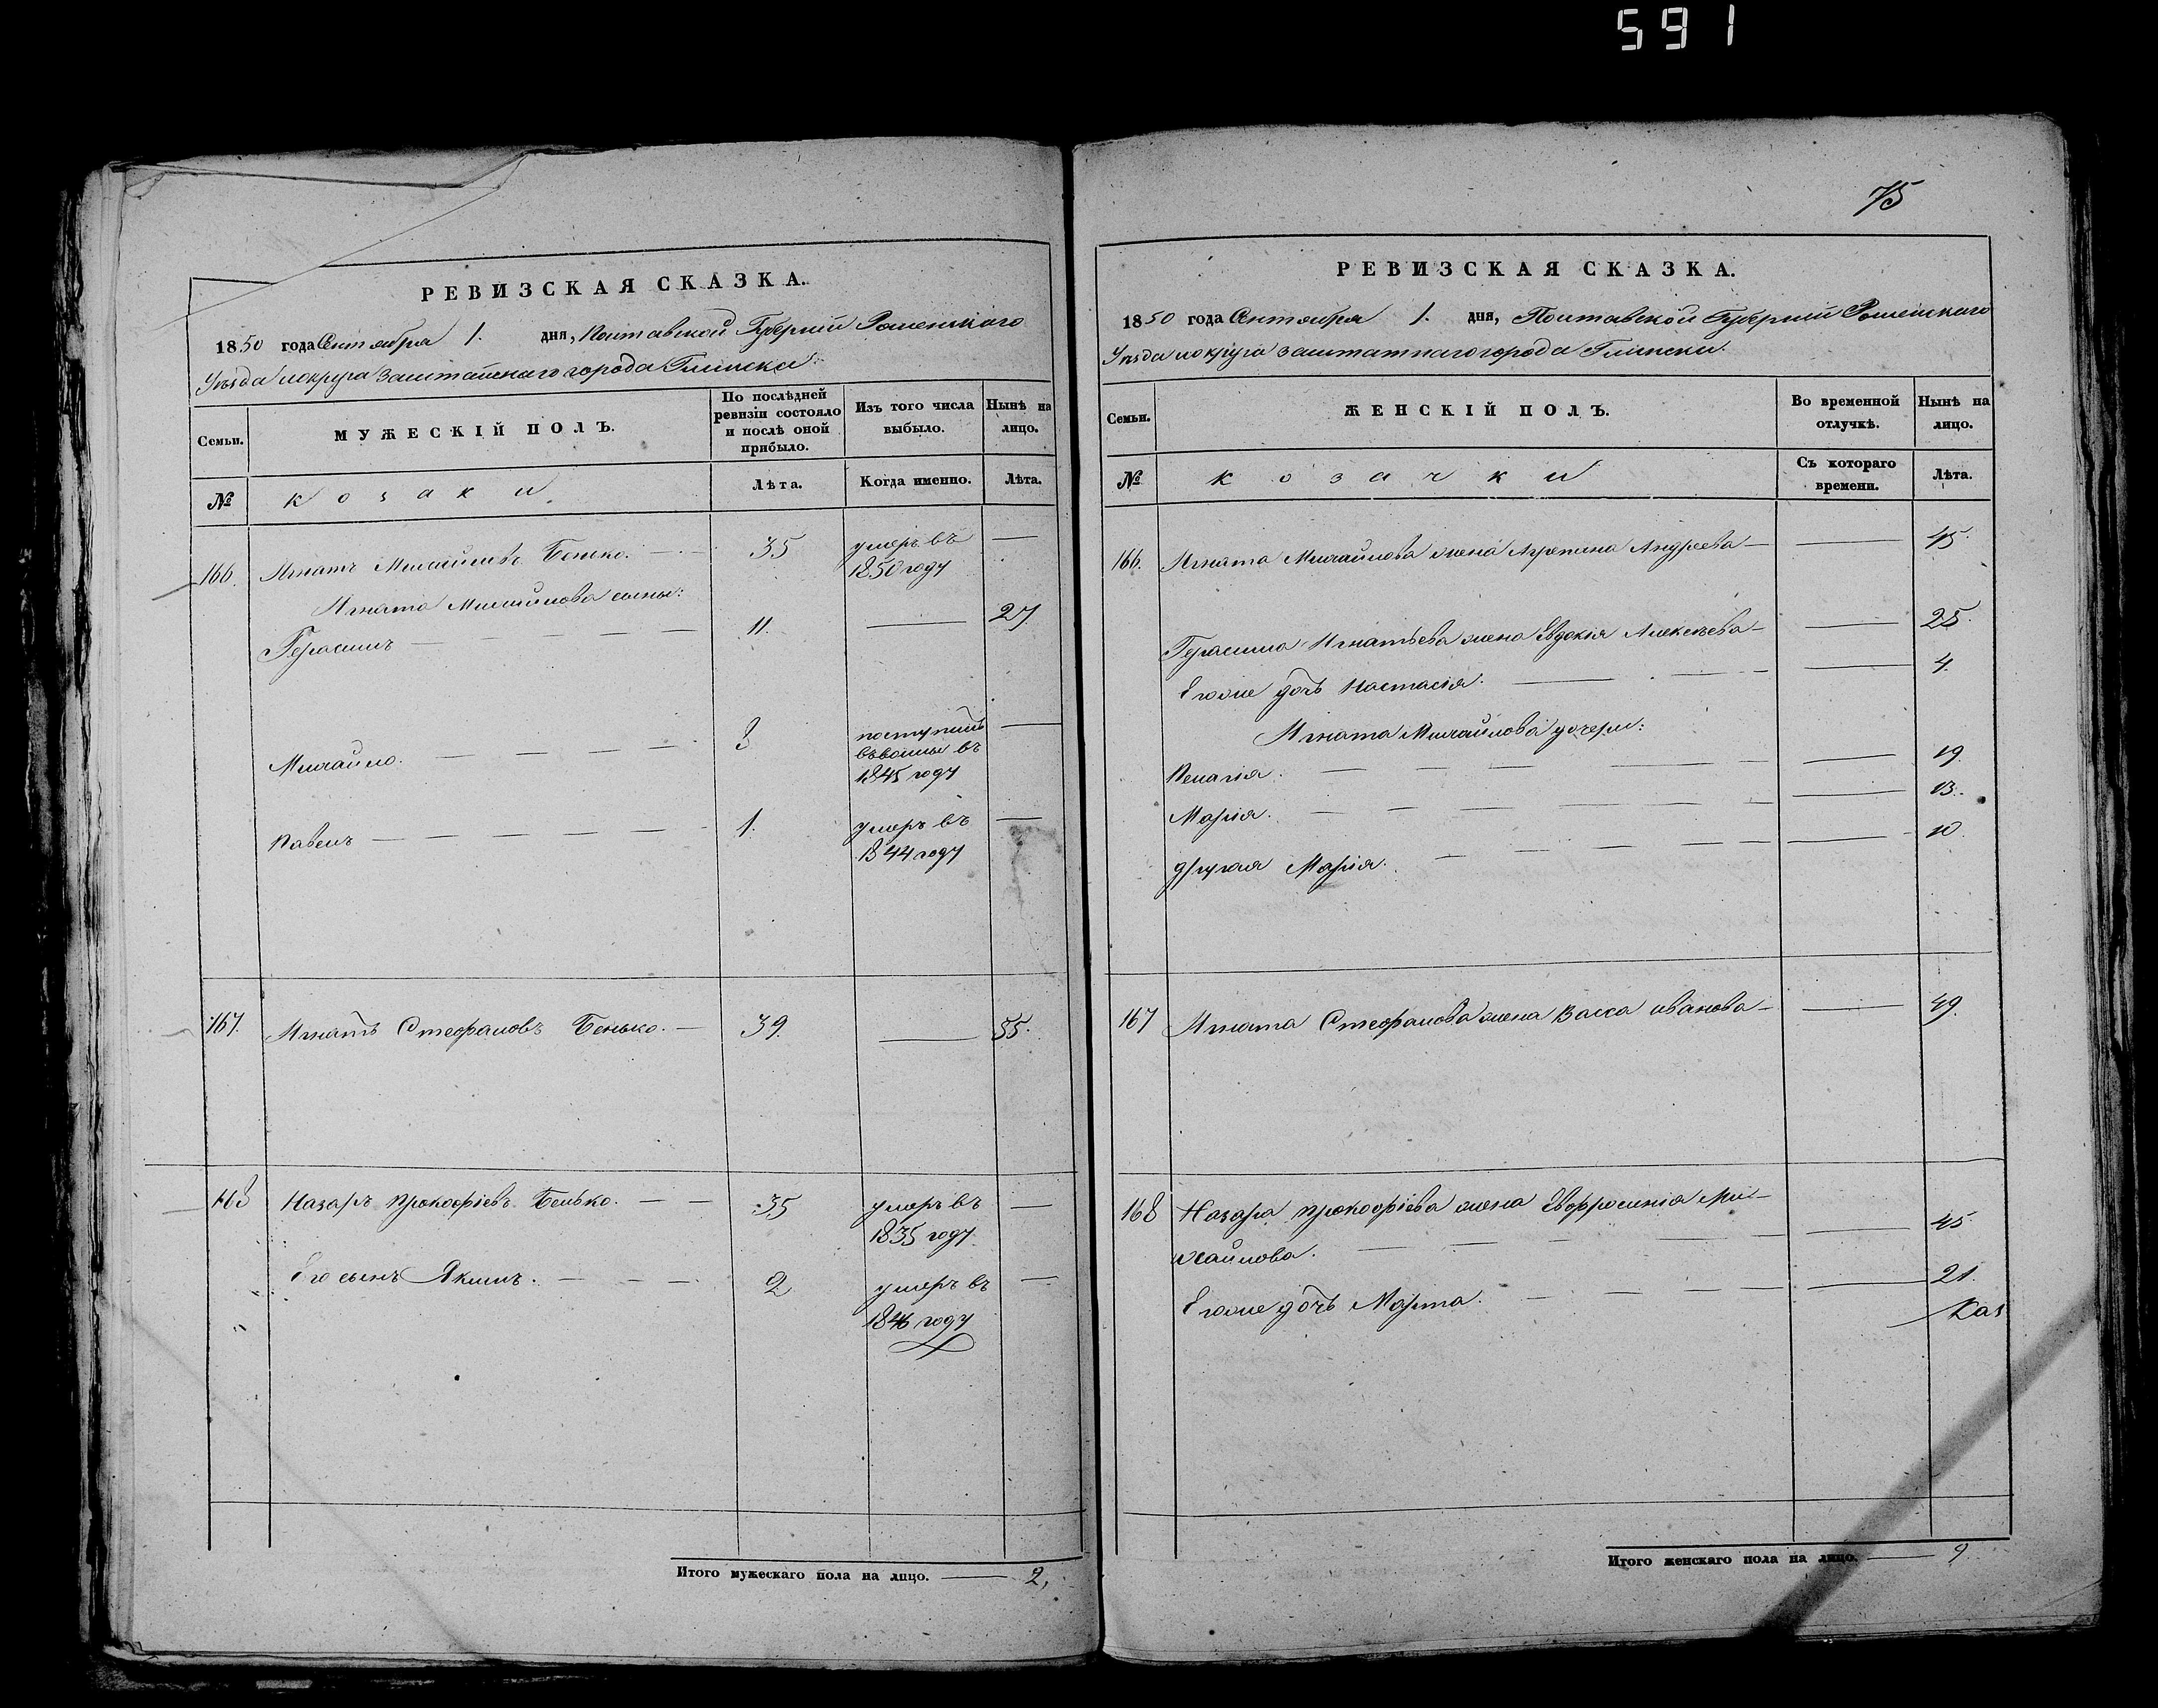 591
75
РЕВИЗСКАЯ СКАЗКА.
1850 года Сентября 1. дня, Полтавской Губерніи Роменскаго
Уѣзда и округа заштатнаго города Глинска.
Семьи.
МУЖЕСКІЙ ПОЛЪ.
По послѣдней ревизіи состояло и послѣ оной прибыло.
Изъ того числа выбыло.
Нынѣ на лицо.
№
козаки
Лѣта.
Когда именно.
Лѣта.
166. Игнатъ Михайловъ Бенько. 35 умеръ въ 1850 году —
Игната Михайлова сыны:
Герасимъ — 11. — 27
Михайло. — 8 поступилъ въ воины въ 1845 году —
Павелъ — 1. умеръ въ 1844 году —
167. Игнатъ Стефановъ Бенько. — 39. — 55.
168 Назаръ Прокофіевъ Бенько. — 35 умеръ въ 1835 году —
Его сынъ Якимъ. — 2 умеръ въ 1846 году —
Итого мужескаго пола на лицо. — 2,
РЕВИЗСКАЯ СКАЗКА.
1850 года Сентября 1. дня, Полтавской Губерніи Роменскаго
Уѣзда и округа заштатнаго города Глинска.
Семьи.
ЖЕНСКІЙ ПОЛЪ.
Во временной отлучкѣ.
Нынѣ на лицо.
№
козачки
Съ котораго времени.
Лѣта.
166. Игната Михайлова жена Агрепина Андреева — 45.
Герасима Игнатьева жена Евдокія Алексѣева — 25.
Его же дочь Настасія. — 4.
Игната Михайлова дочери:
Пелагія. — 19.
Марія. — 13.
другая Марія. — 10.
167 Игната Стефанова жена Васса Иванова — 49.
168 Назара Прокофіева жена Евфросинія Ми-
хайлова. — 45
Его же дочь Марта. — 21.
Каз
Итого женскаго пола на лицо. — 9